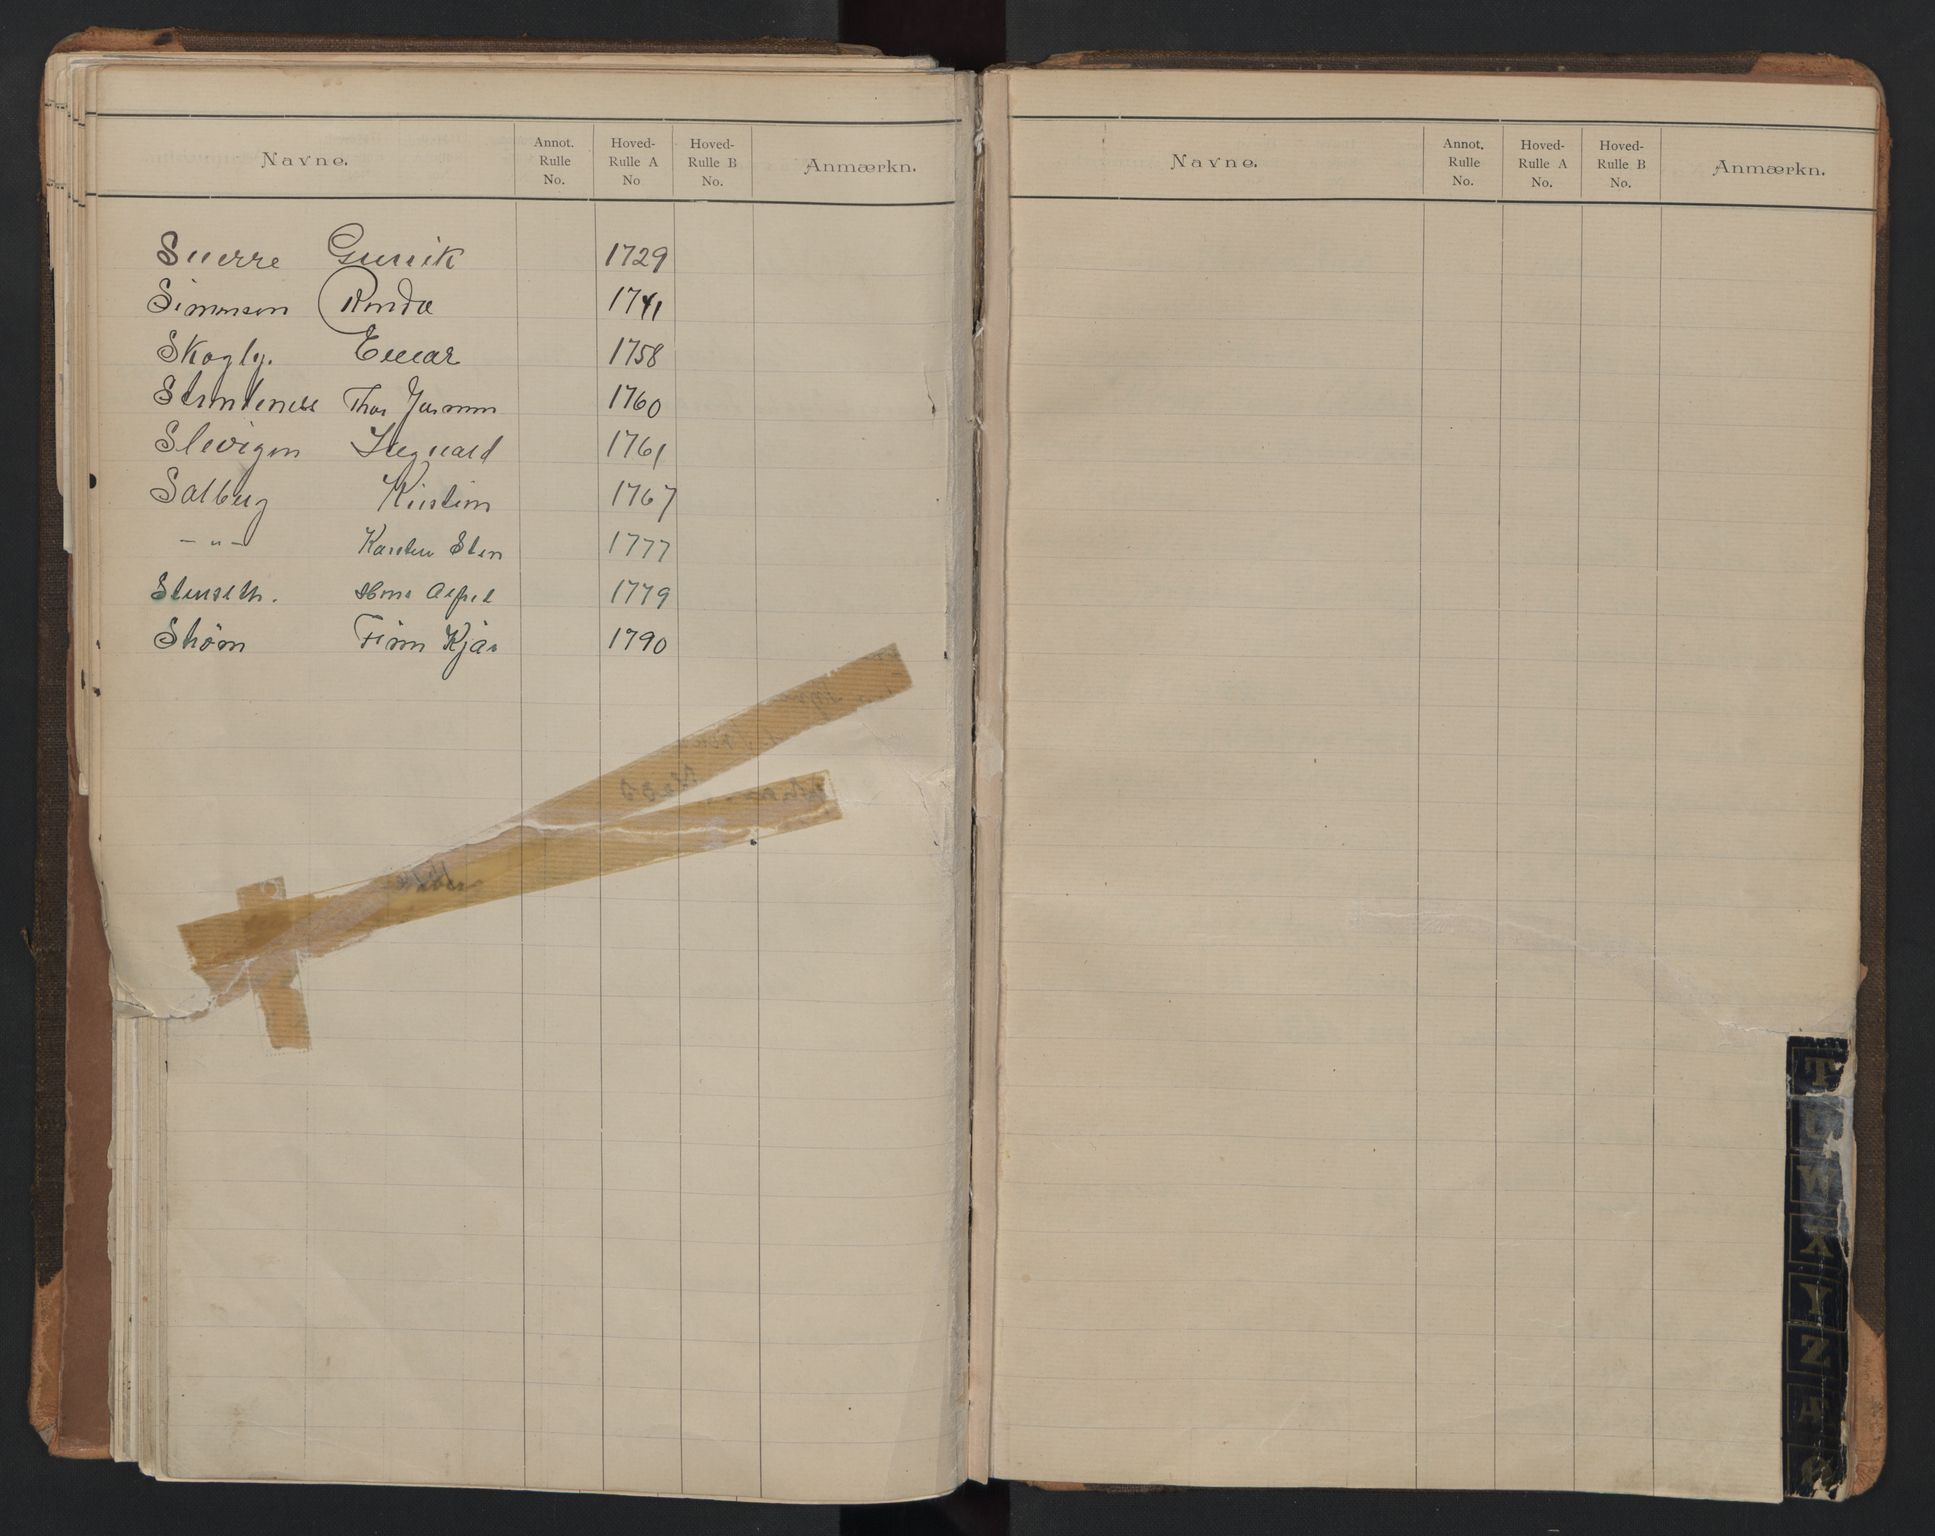 Navne.
Annot. Rulle No.
Hoved-Rulle A No
Hoved-Rulle B No.
Anmærkn.
Sverre Gunnik 1729
Simonsen 1741
Skogly. Einar 1758
Thor 1760
Slevigen 1761
Salberg Kristian 1767
-"- Karsten Sten 1777
Stenseth. Hans Alfred 1779
Strøm Finn Kjær 1790
Navne.
Annot. Rulle No.
Hoved-Rulle A No.
Hoved-Rulle B No.
Anmærkn.
T
W
X
Y
Z